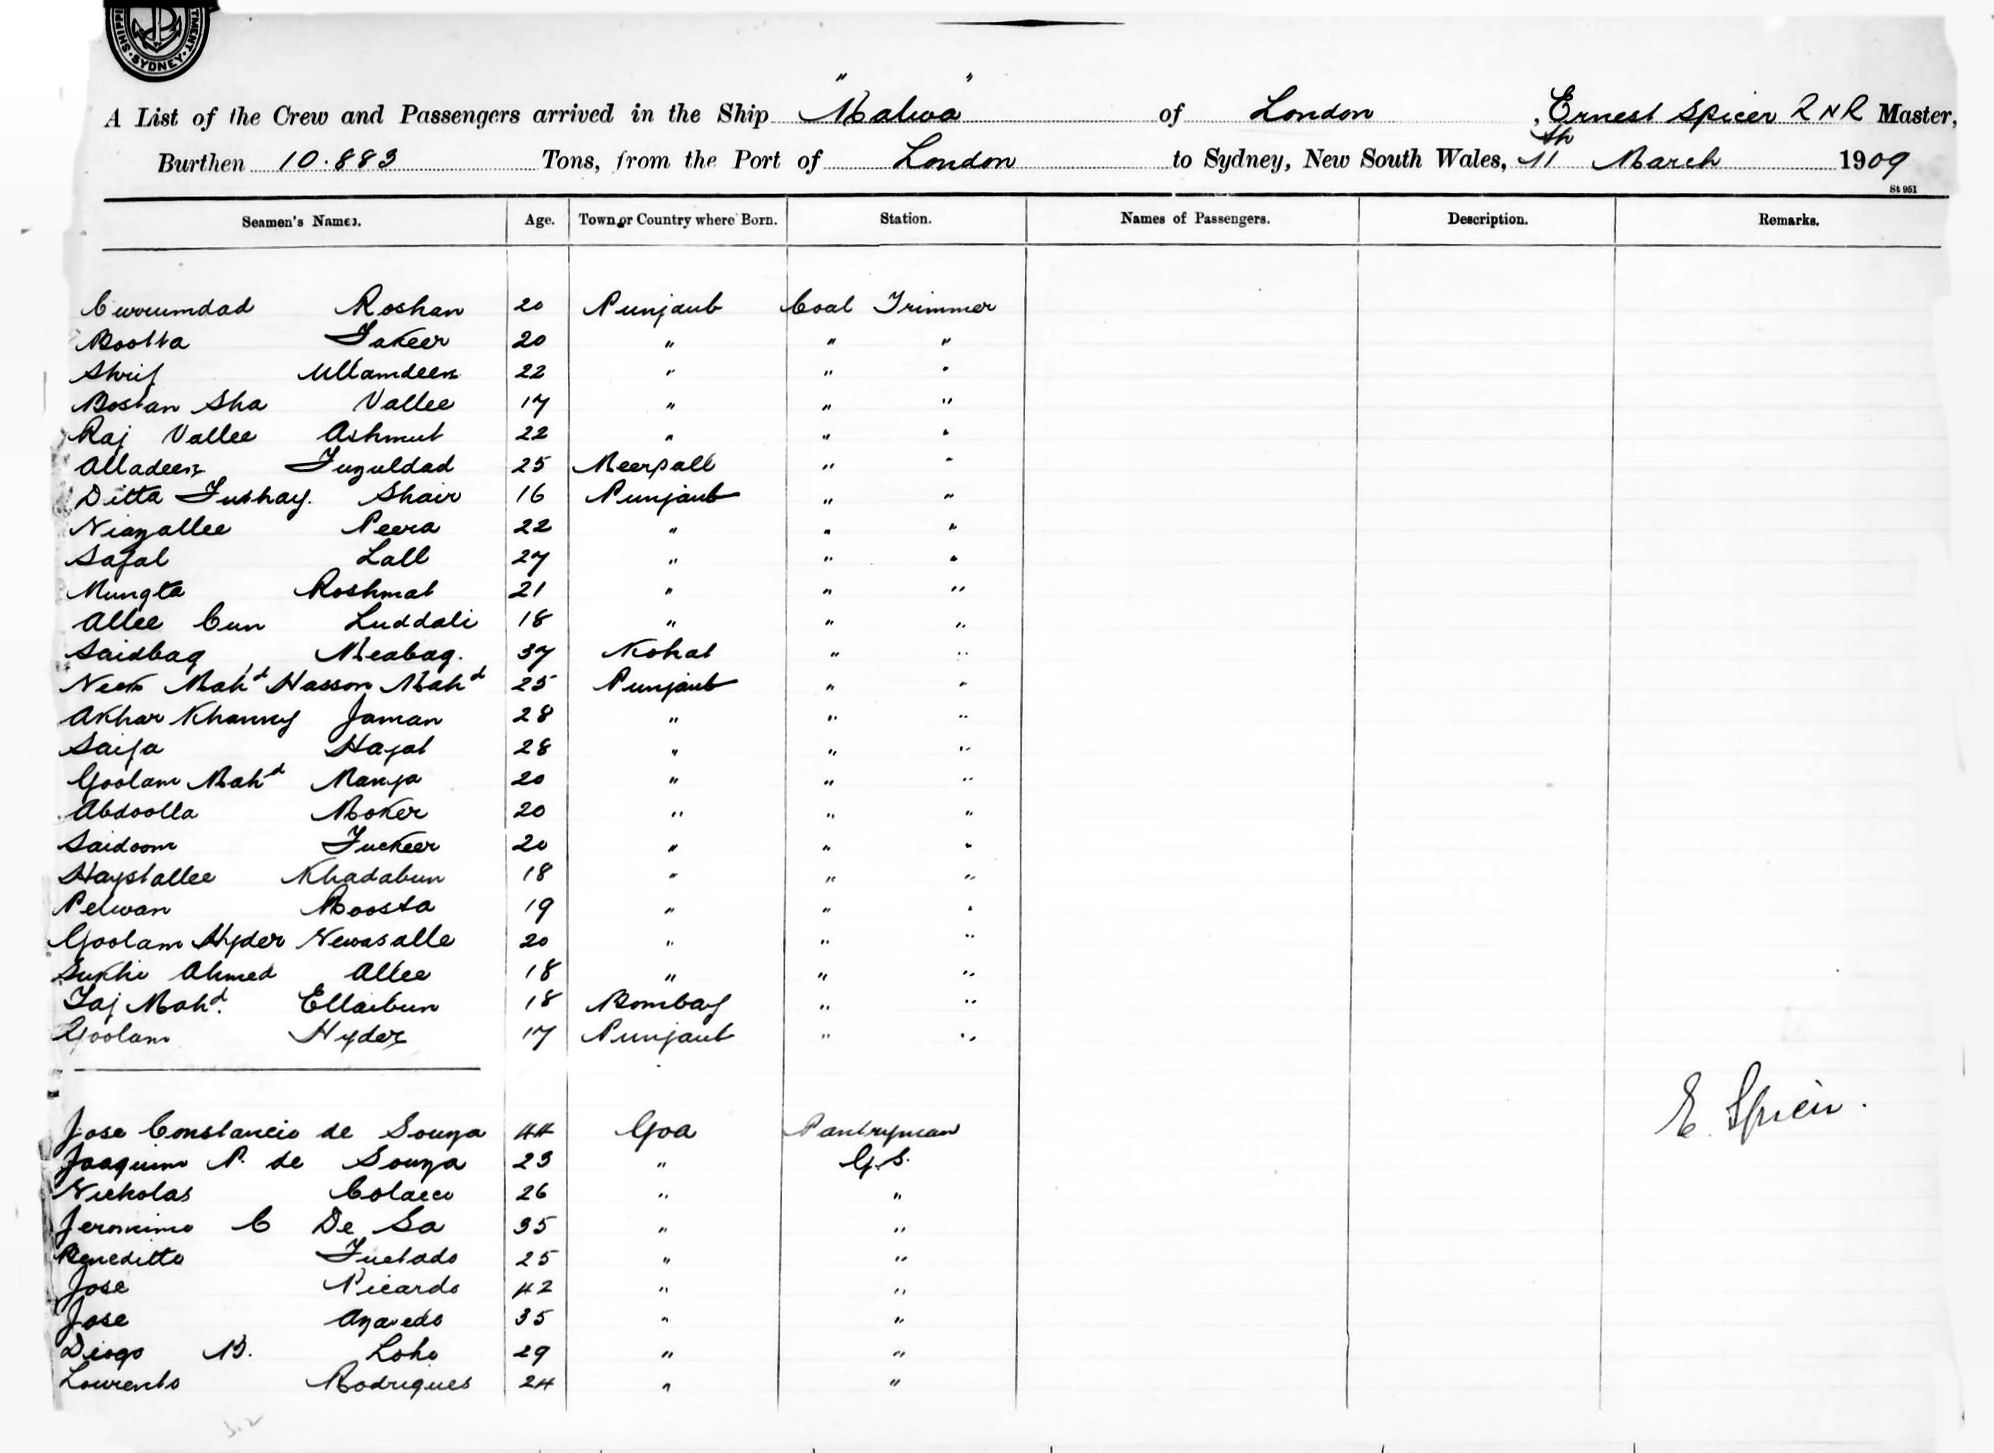 SHIPPI TMENT. SYDNEY
A List of the Crew and Passengers arrived in the Ship "Malwa" of London, Ernest Spicer RNR Master,
Burthen 10.883 Tons, from the Port of London to Sydney, New South Wales, 11th March 1909
St 951
Seamen's Names. Age. Town or Country where Born. Station. Names of Passengers. Description. Remarks.
Currumdad Roshan 20 Punjaub Coal Trimmer
Bootta Fakeer 20 " " "
Shrif Ullamdeen 22 " " "
Bostan Sha Vallee 17 " " "
Raj Vallee Ashmut 22 " " "
Alladeen Fuzuldad 25 Meerpall " "
Ditta Shair 16 Punjaub " "
Niazallee Peera 22 " " "
Safal Lall 27 " " "
Mungta Roshmat 21 " " "
Allee Cun Luddali 18 " " "
Saidbag Meabag. 37 Kohat " "
Neek Mahd Hasson Mahd 25 Punjaub " "
Akhar Jaman 28 " " "
Saifa Hayat 28 " " "
Goolam Mahd Manga 20 " " "
Abdoolla Boker 20 " " "
Saidoom Fuckeer 20 " " "
Haystallee Khadabun 18 " " "
Pelwan Boosta 19 " " "
Goolam Hyder Newasalle 20 " " "
Sukhi Ahmed Allee 18 " " "
Taj Mahd. Ellaibun 18 Bombay " "
Goolam Hyder 17 Punjaub " "
E. Spicer.
Jose Constancio de Souza 44 Goa Pantryman
Joaquim P. de Souza 23 " G.S.
Nicholas Colaco 26 " "
Jeronimo C De Sa 35 " "
Beneditto Furtado 25 " "
Jose Picardo 42 " "
Jose Azavedo 35 " "
Diogo B. Lobo 29 " "
Lourento Rodrigues 24 " "